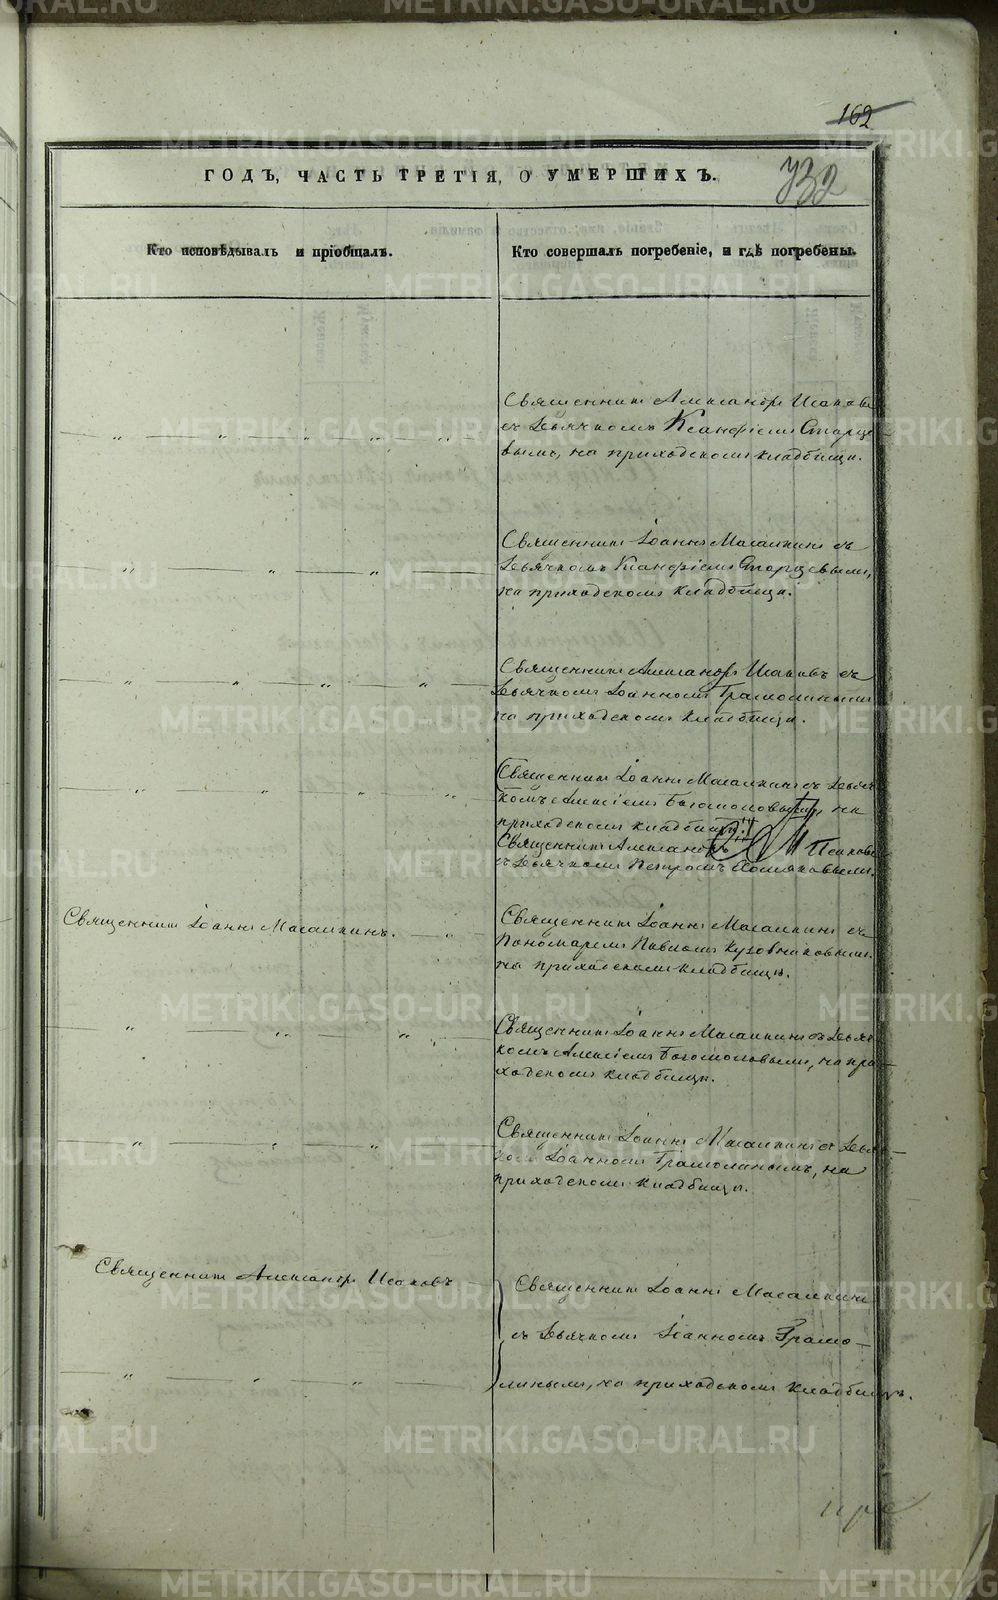 162
732
ГОДЪ, ЧАСТЬ ТРЕТІЯ, О УМЕРШИХЪ.
Кто исповѣдывалъ и пріобщалъ.
Кто совершалъ погребеніе, и гдѣ погребены.
Священникъ Александръ Исаковъ
съ Дьячкомъ Ксанфіемъ Старце-
вымъ, на приходскомъ кладбищѣ.
Священникъ Іоаннъ Масалкинъ съ
Дьячкомъ Ксанфіемъ Старцевымъ,
на приходскомъ кладбищѣ.
Священникъ Александръ Исаковъ съ
Дьячкомъ Іоанномъ Грамолинымъ
на приходскомъ кладбищѣ.
Священникъ Іоаннъ Масалкинъ съ Дьяч-
комъ Алексіемъ Богомоловымъ, на
приходскомъ кладбищѣ.
Священникъ Александръ Исаковъ
съ Дьячкомъ Петромъ
Священникъ Іоаннъ Масалкинъ.
Священникъ Іоаннъ Масалкинъ съ
Пономаремъ Павломъ Кузовниковымъ.
на приходскомъ кладбищѣ.
Священникъ Іоаннъ Масалкинъ съ Дьяч-
комъ Алексіемъ Богомоловымъ, на при-
ходскомъ кладбищѣ.
Священникъ Іоаннъ Масалкинъ съ Дьяч-
комъ Іоанномъ Грамолинымъ, на
приходскомъ кладбищѣ.
Священникъ Александръ Исаковъ
Священникъ Іоаннъ Масалкинъ
съ Дьячкомъ Іоанномъ Грамо-
линымъ, на приходскомъ кладбищѣ.